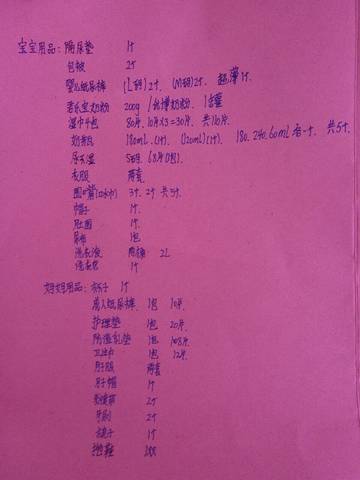 宝宝用品：隔尿垫 1个
包被 2个
婴儿纸尿裤 (L码)2个. (M码)2个. 超薄1个.
喜乐宝奶粉 200g / 奶粉. 1罐
湿巾 80片. 10片×3=30片. 共110片.
奶瓶 180ml.(1个). (120ml)(1个). 180.240.60ml各一个. 共5个.
尿不湿
衣服 两套
围嘴(口水巾) 3个. 2个 共5个.
帽子 1个.
肚围 1个.
1包
洗衣液 2L
1个
妈妈用品：杯子 1个
成人纸尿裤 1包 10片.
护理垫 1包 20片.
防溢乳垫 1包 108片
卫生巾 1包 12片.
月子服 两套
月子帽 1个
2个
牙刷 2个
梳子 1个
拖鞋